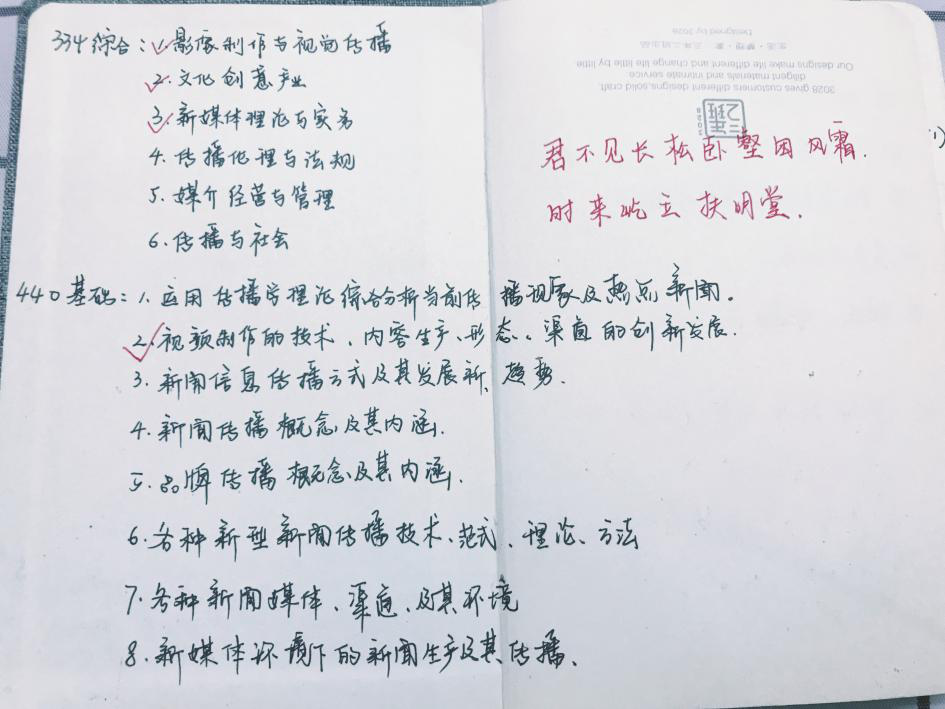 334综合：1.影像制作与视觉传播
2.文化创意产业
3.新媒体理论与实务
4.传播伦理与法规
5.媒介经营与管理
6.传播与社会
440基础：1.应用传播学理论综合分析当前传播现象及热点新闻。
2.视频制作的技术、内容生产、形态、渠道的创新发展.
3.新闻信息传播方式及其发展新趋势.
4.新闻传播概念及其内涵.
5.品牌传播概念及其内涵.
6.各种新型新闻传播技术、范式、理论、方法
7.各种新闻媒体、渠道、及其环境
8.新媒体环境下的新闻生产及其传播、
Designed by 3028
Our designs make life different and change life little by little
diligent materials and intimate service.
3028 gives customers different designs,solid craft.
三年二班
3028
君不见长松卧壑困风霜.
时来屹立扶明堂.